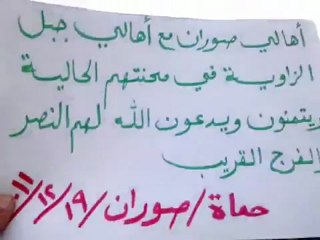 أهالي صوران مع أهالي جبل
الزاوية في محنتهم الحالية
ويتمنون ويدعون الله لهم النصر
والفرج القريب
حماة/صوران/١١/١٢/١٩